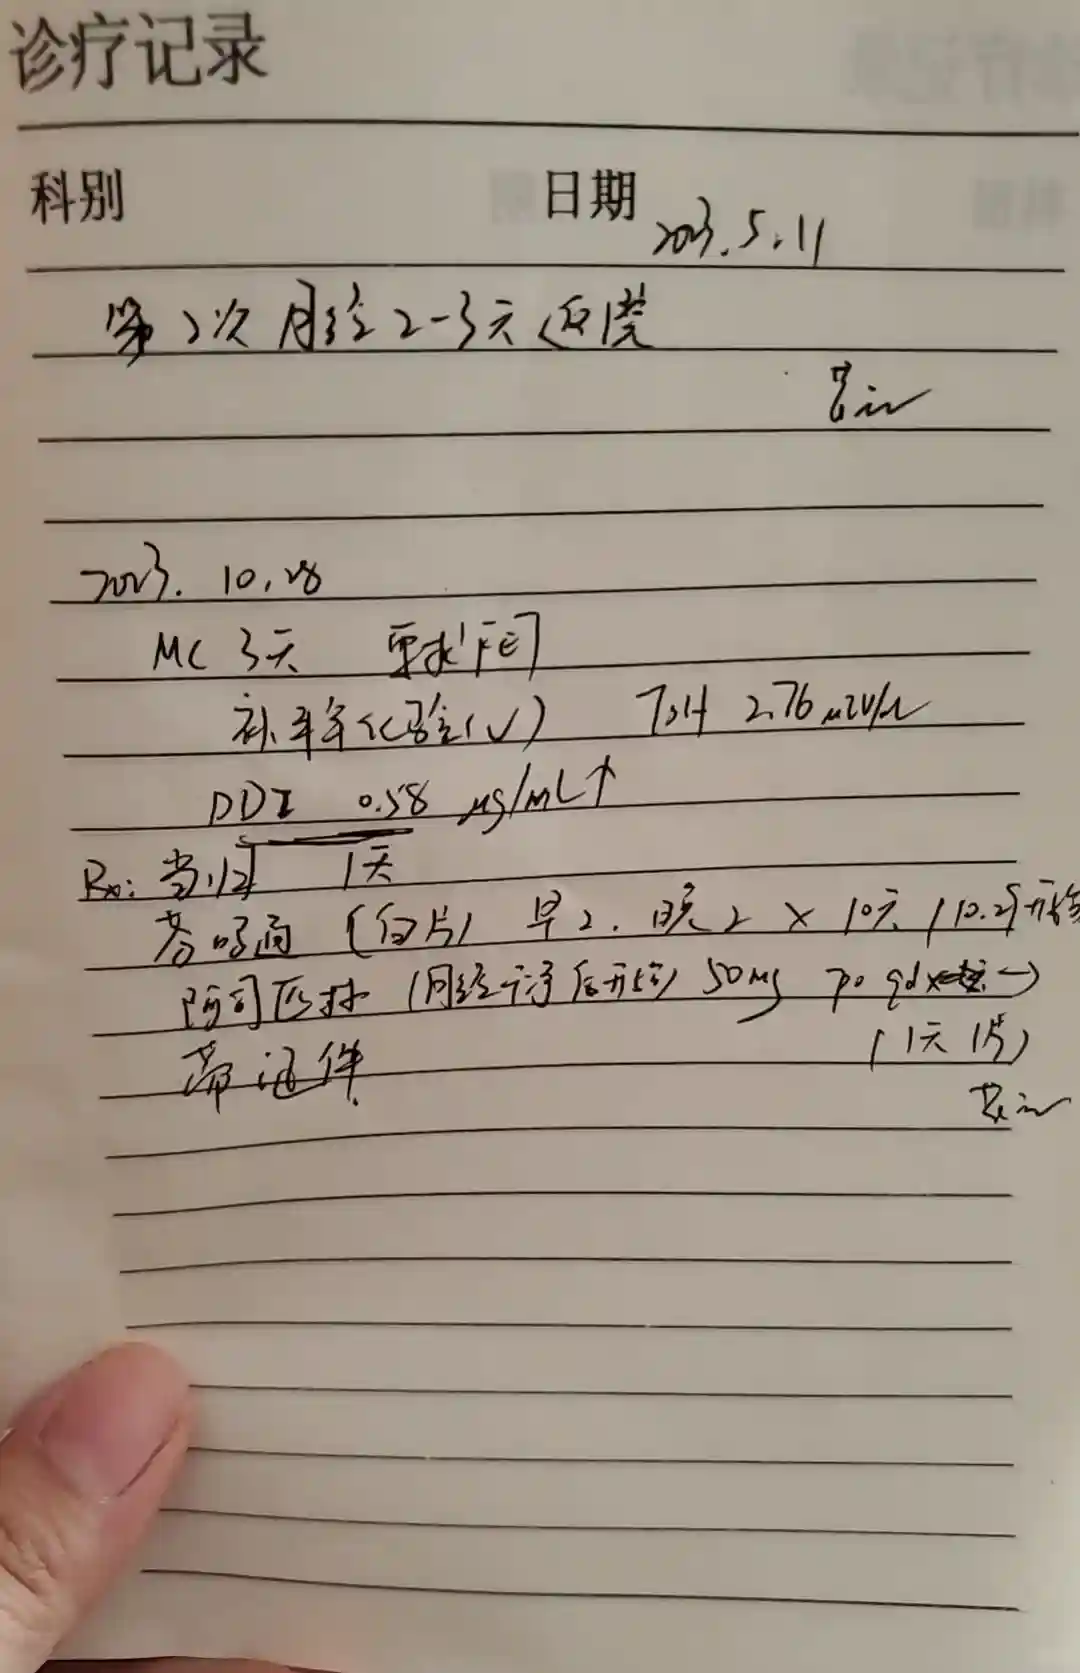 诊疗记录
科别 日期 2023.5.11
第2次月经2-3天返院
2023.10.28
MC 3天 要求FET
补半年化验(√) TSH 2.76 μIU/
DDI 0.58 μg/mL↑
Rx: 1天
芬吗通(白片) 早2.晚2×10天(10.29开始
阿司匹林(月经干净后开始) 50mg po qd
(1天1片)
带证件.